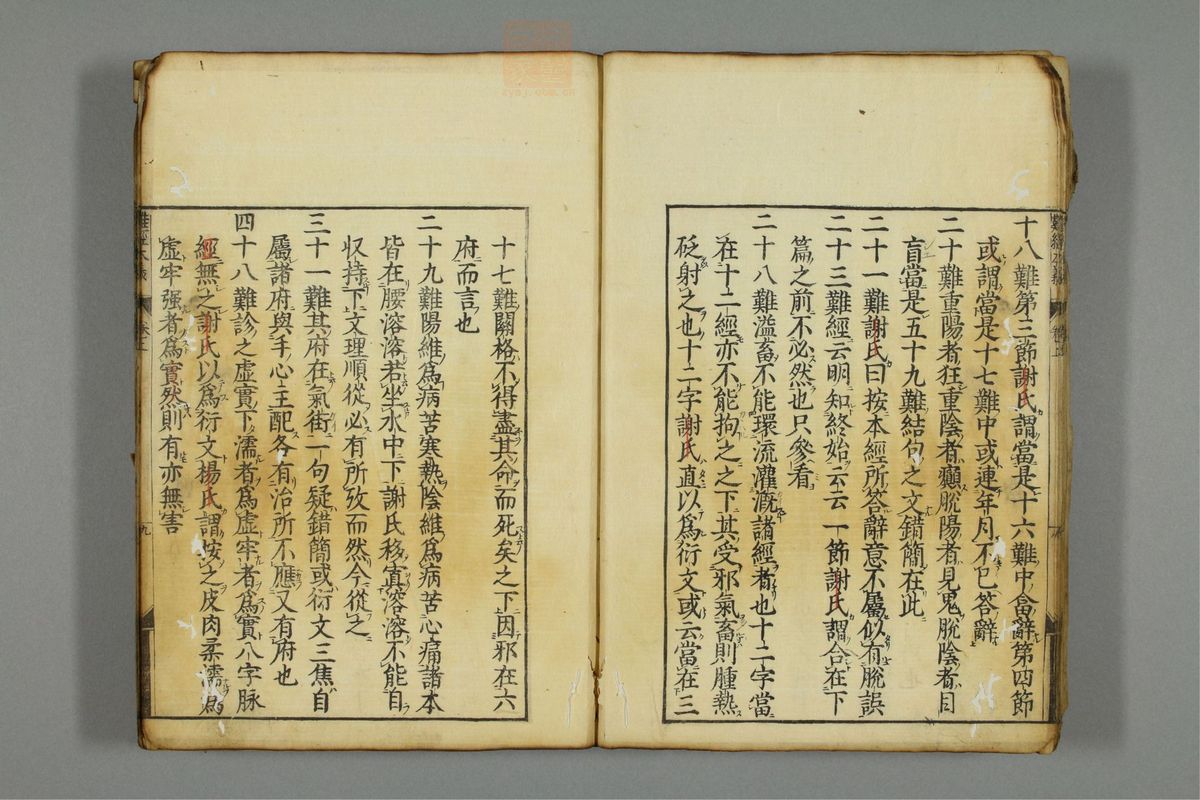 十八難第三節謝氏謂當是十六難中畣辭第四節
或謂當是十七難中或連年月不已答辭
二十難重陽者狂重陰者癲脫陽者見鬼脫陰者目
盲當是五十九難結句之文錯簡在此
二十一難謝氏曰按本經所答辭意不屬似有脫誤
二十三難經云明知終始云云一節謝氏謂合在下
篇之前不必然也只參看
二十八難溢畜不能環流灌漑諸經者也十二字當
在十二經亦不能拘之之下其受邪氣畜則腫熱
砭射之也十二字謝氏直以爲衍文或云當在三
十七難關格不得盡其命而死矣之下因邪在六
府而言也
二十九難陽維爲病苦寒熱陰維爲病苦心痛諸本
皆在腰溶溶若坐水中下謝氏移寘溶溶不能自
收持下文理順從必有所攷而然今從之
三十一難其府在氣街一句疑錯簡或衍文三焦自
屬諸府與手心主配各有治所不應又有府也
四十八難診之虛實下濡者爲虛牢者爲實八字脉
經無之謝氏以爲衍文楊氏謂按之皮肉柔濡爲
虛牢强者爲實然則有亦無害
九
zysj.com.cn